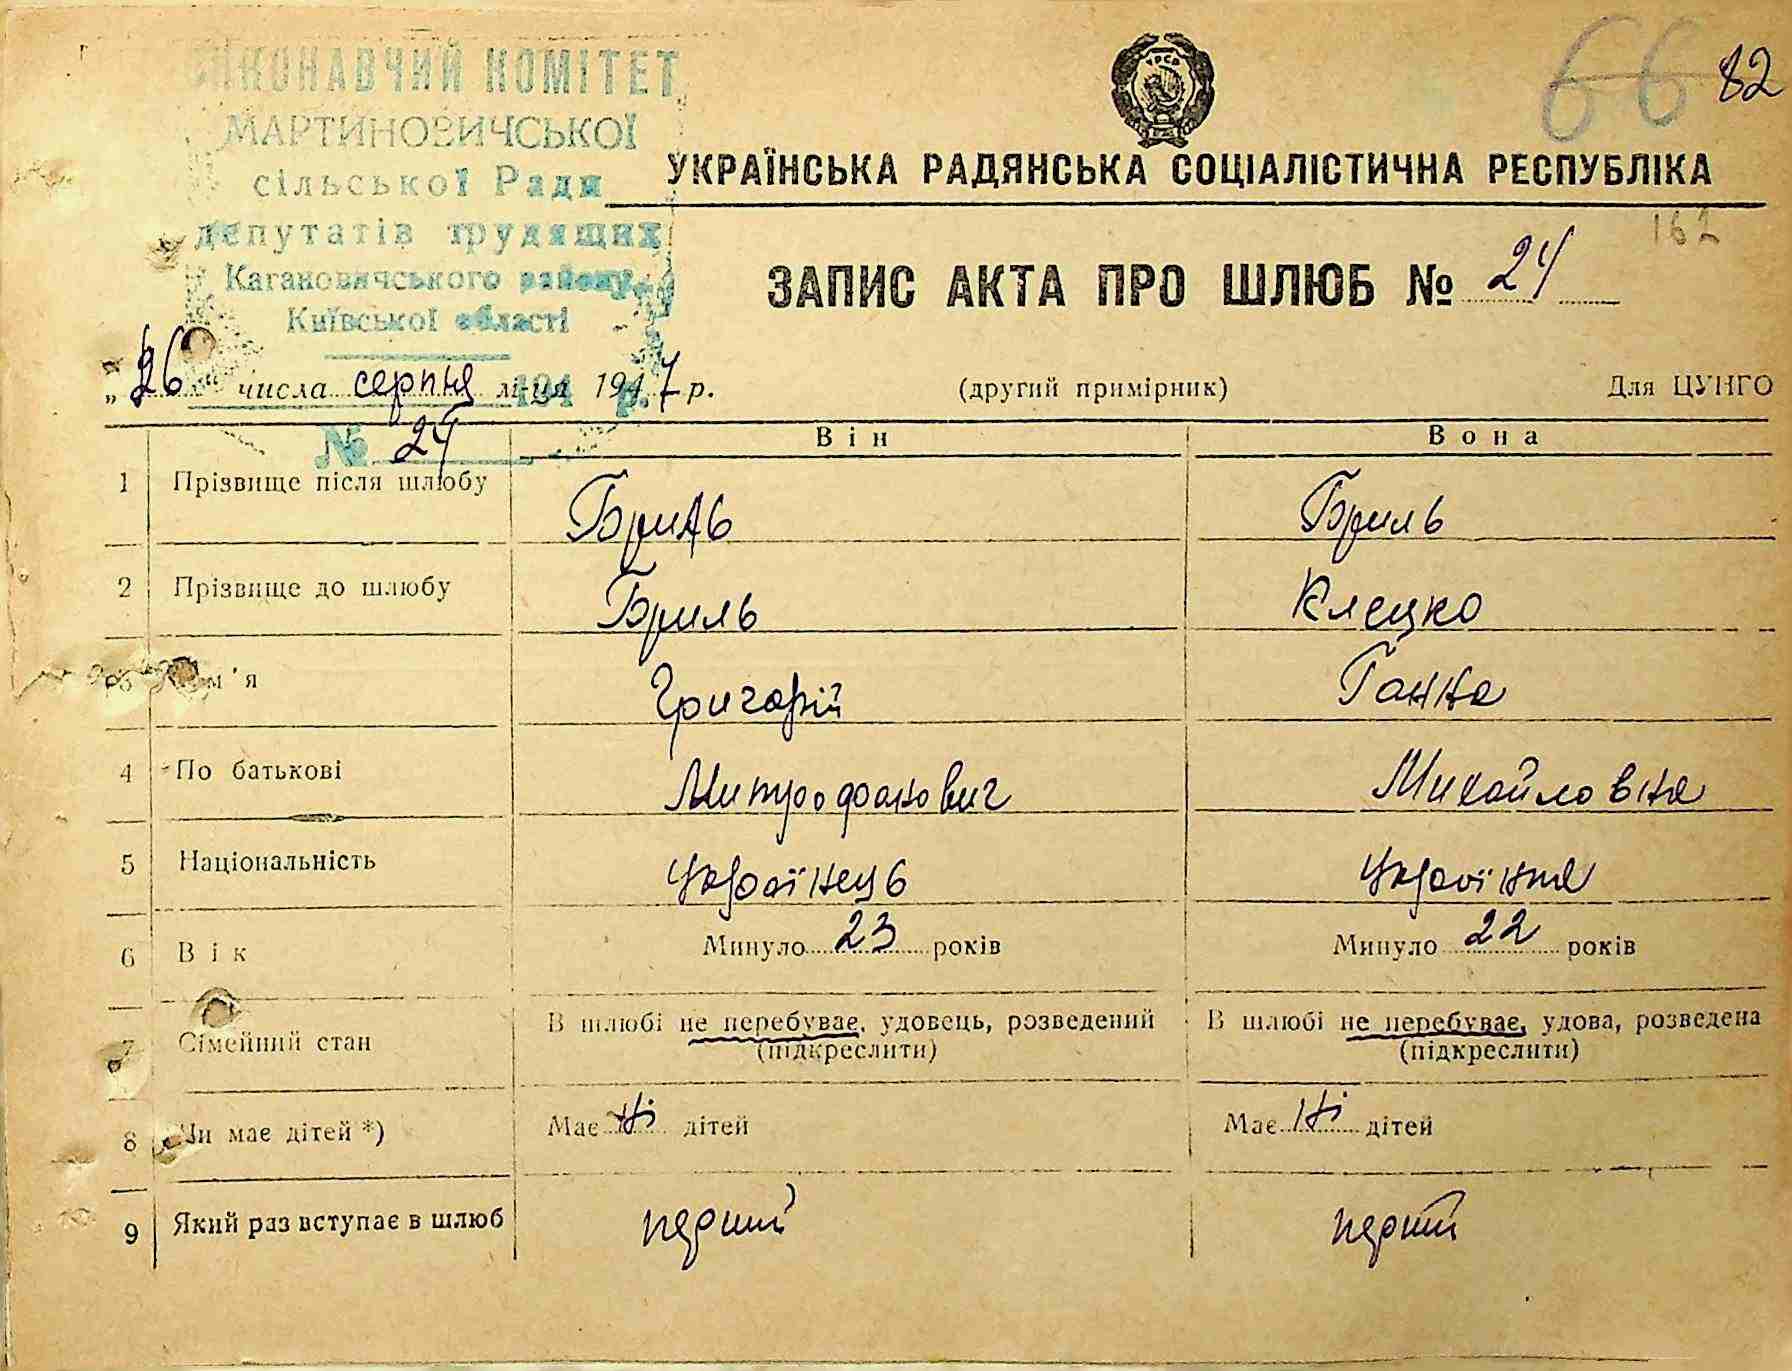 ВИКОНАВЧИЙ КОМІТЕТ
МАРТИНОВИЧСЬКОЇ
сільської Ради
депутатів трудящих
Кагановичського району
Київської області
194 р.
№ 24
66 82
УРСР
УКРАЇНСЬКА РАДЯНСЬКА СОЦІАЛІСТИЧНА РЕСПУБЛІКА
162
ЗАПИС АКТА ПРО ШЛЮБ № 24
„26" числа серпня м-ця 1947 р. (другий примірник) Для ЦУНГО
Він Вона
1 Прізвище після шлюбу Бриль Бриль
2 Прізвище до шлюбу Бриль Клецко
3 Ім'я Григорій Ганна
4 По батькові Митрофанович Михайловна
5 Національність Українець Українка
6 Вік Минуло 23 років Минуло 22 років
7 Сімейний стан В шлюбі не перебуває, удовець, розведений В шлюбі не перебуває, удова, розведена
(підкреслити) (підкреслити)
8 Чи має дітей *) Має ні дітей Має ні дітей
9 Який раз вступає в шлюб перший перший